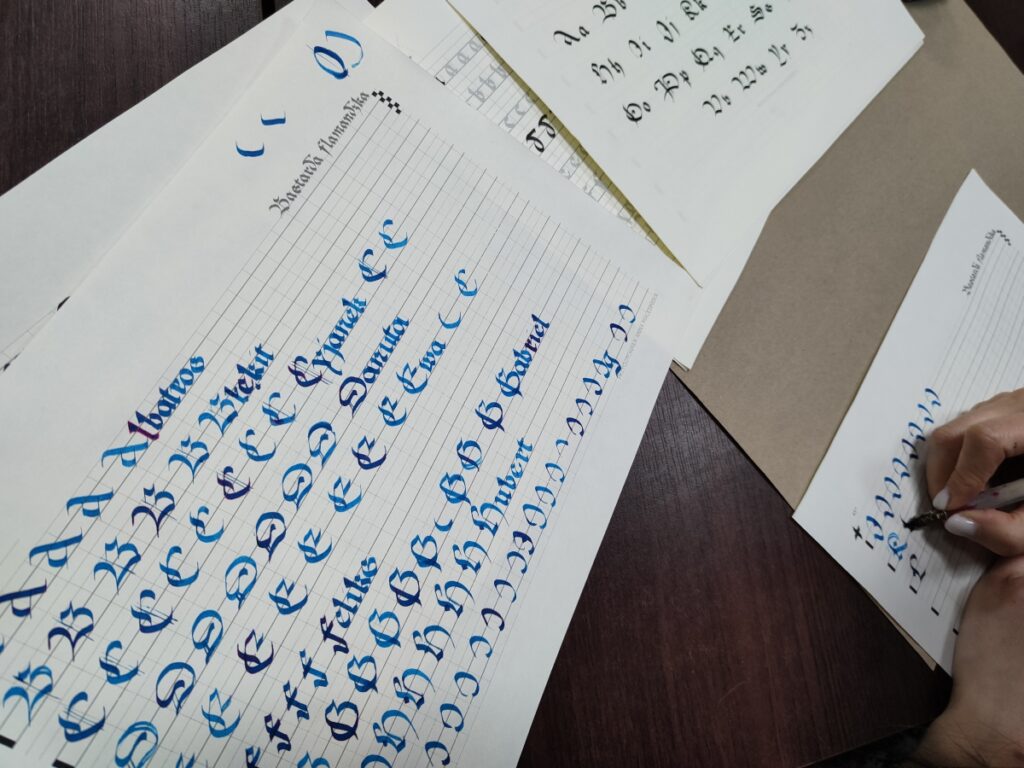 Bastarda flamandzka
A A A A Albatros
B B B B B Błękit
C C C C C C C C Cyjanek C C
D D D D D D D Danuta
E E E E E E E E Ewa C C
F F F F Feliks
G G G G G G G G G Gabriel
H H H H H Hubert
Aa Bb
Hh Ii Jj Kk
Oo Pp Qq Rr Ss
Vv Ww Yy Zz
Bastarda flamandzka